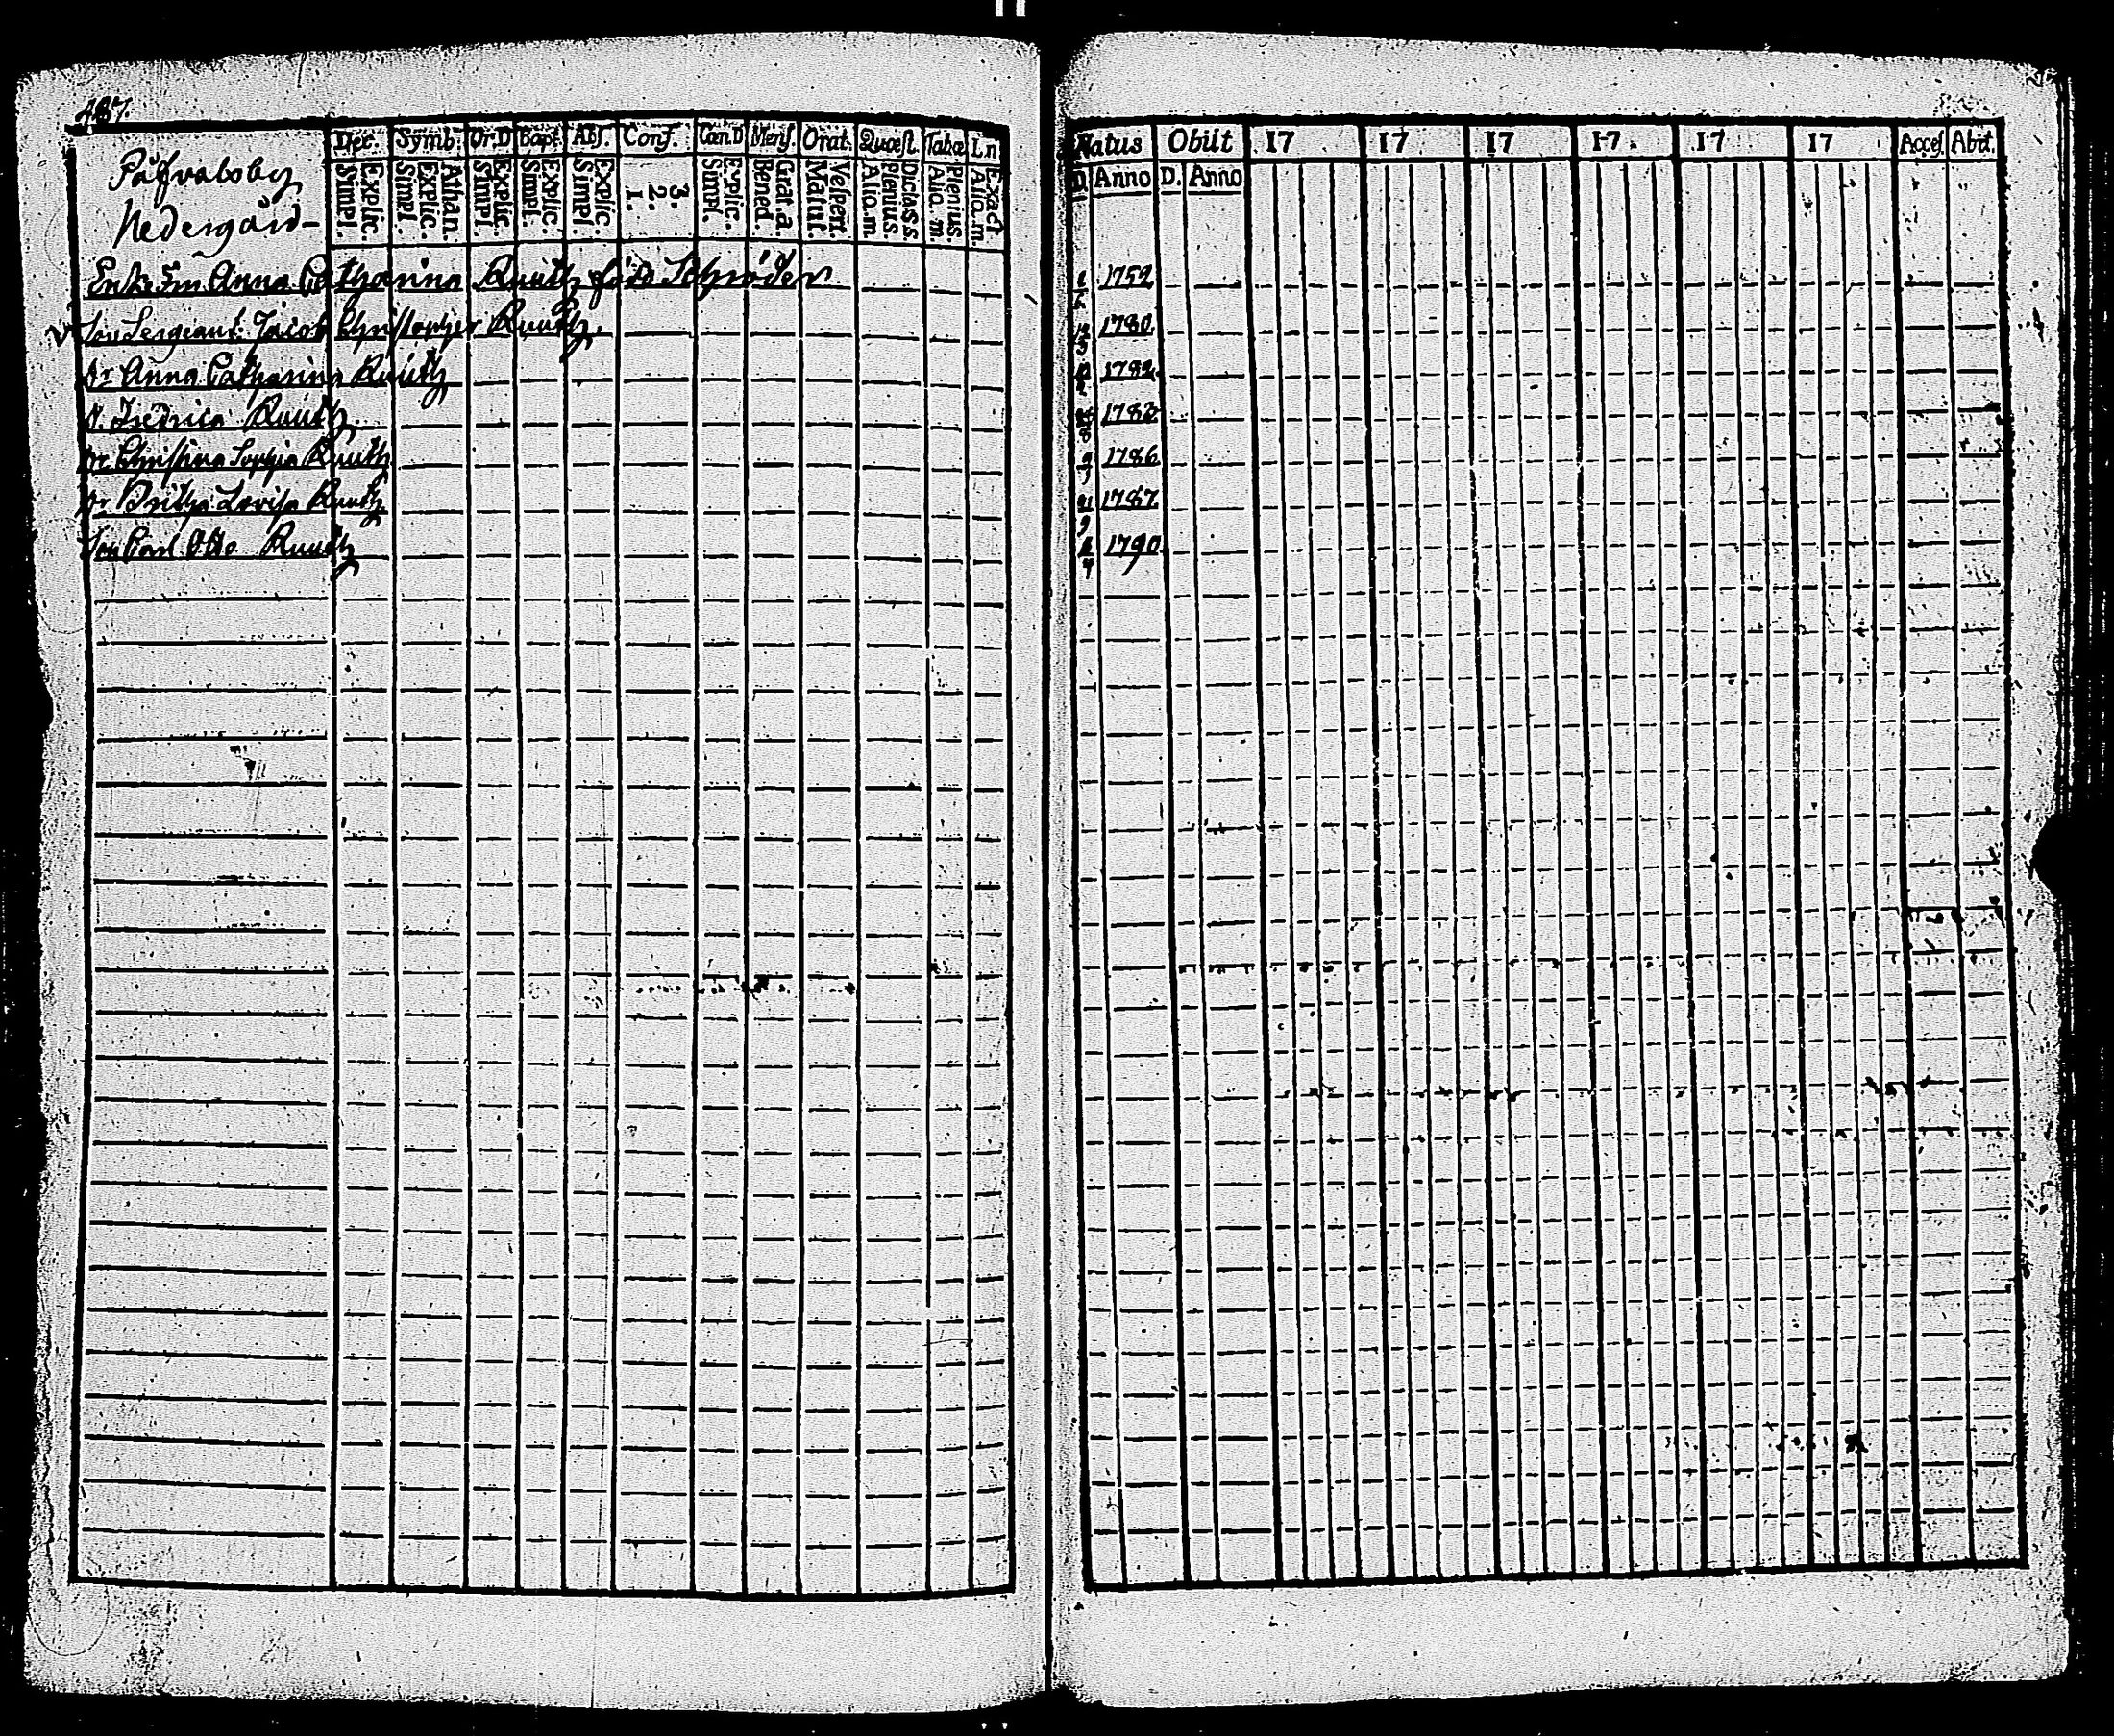 487.
Påfvalsby
Nedergård
Dec. Symb. Or.D Bapt. Abſ. Conf. Cœn.D Menſ. Orat. Quœſt. Tabœ Ln
Explic. Simpl. Athan. Explic. Simpl. Explic. Simpl. Explic. Simpl. Explic. Simpl. 3. 2. 1. Explic. Simpl. Grat.a. Bened. Veſpert. Matut. Dicta S.s. Plenius. Alio.m. Plenius. Alio.m. Exact Alio.m.
Natus Obiit 17 17 17 17 17 17 Acceſ. Abit.
D. Anno D. Anno
Enke Fru Anna Catharina Ruuth född Schröder 1752
Son Sergeant Jacob Christopher Ruuth. 1780.
Dr Anna Catharina Ruuth 1782.
D. Fredrica Ruuth 1783.
Dr Christina Sophia Ruuth 9/7 1786
Dr Britha Lovisa Ruuth 21/9 1787.
Son Carl Otto Ruuth 1790